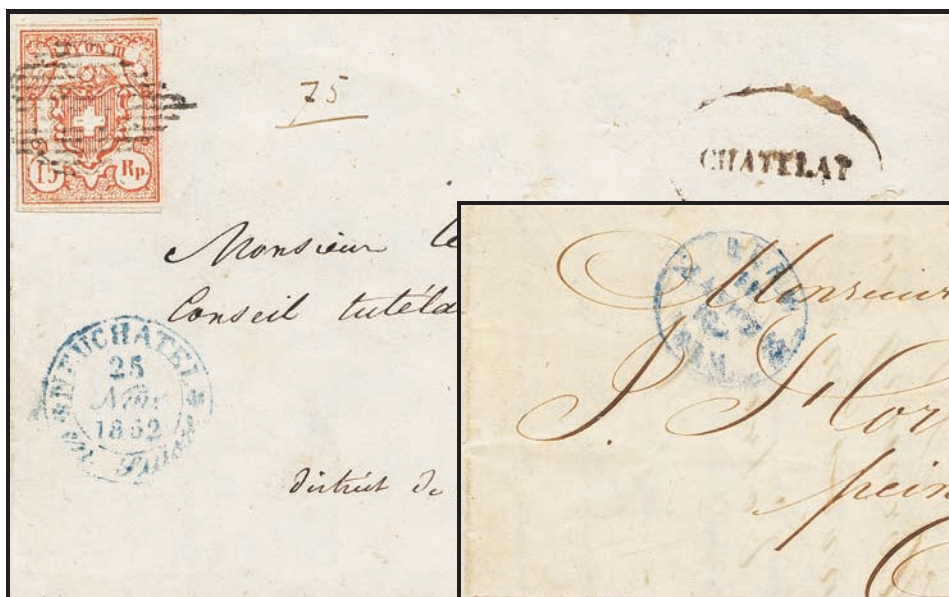 RAYON III
15 Rp.
75
CHATELAT
Monsieur le
Conseil tutéla
NEUCHATEL
25
Nov.
1852
Suisse
district de
BERN
Monsieur
J. Hor
pein